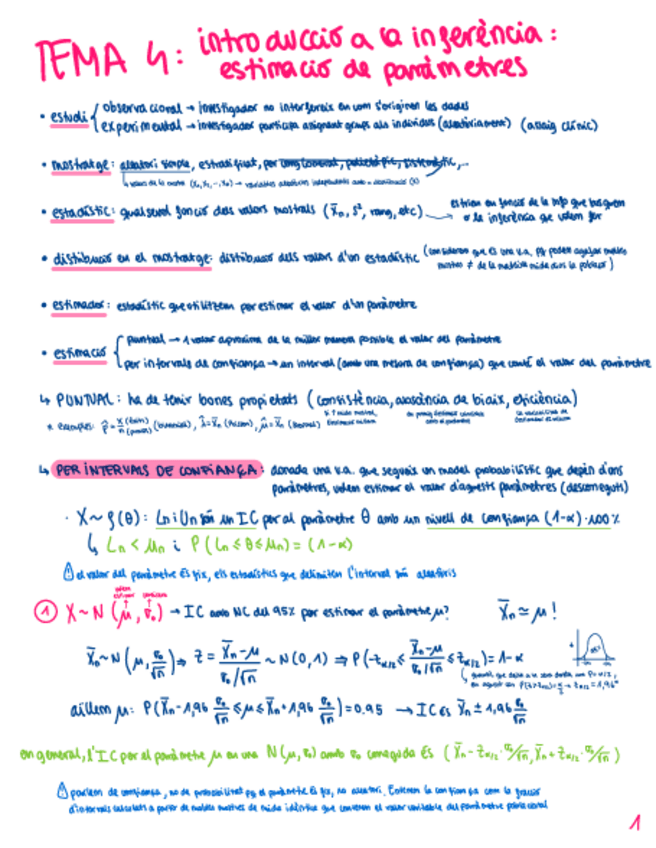 TEMA 4: introducció a la inferència:
estimació de paràmetres
• estudi { observacional → investigador no interfereix en com s'originen les dades
experimental → investigador participa assignant grups als individus (aleatòriament) (assaig clínic)
• mostratge: aleatori simple, estratificat, per conglomerat, polietàpic, sistemàtic, ...
• estadístic: qualsevol funció dels valors mostrals (X̄n, S², rang, etc) → es trien en funció de la info que busquem
o la inferència que volem fer
• distribució en el mostratge: distribució dels valors d'un estadístic (considerem que és una v.a. pq podem agafar moltes
mostres ≠ de la mateixa mida dins la població)
• estimador: estadístic que utilitzem per estimar el valor d'un paràmetre
• estimació { puntual → 1 valor aproxima de la millor manera possible el valor del paràmetre
per intervals de confiança → un interval (amb una mesura de confiança) que conté el valor del paràmetre
↳ PUNTUAL: ha de tenir bones propietats (consistència, absència de biaix, eficiència)
* exemples: p̂ = x (èxits) / n (proves) (binomial), λ̂ = X̄n (Poisson), μ̂ = X̄n (Normal)
↳ PER INTERVALS DE CONFIANÇA: donada una v.a. que segueix un model probabilístic que depèn d'uns
paràmetres, volem estimar el valor d'aquests paràmetres (desconeguts)
· X ~ f(θ): Ln i Un són un IC per al paràmetre θ amb un nivell de confiança (1-α)·100%
↳ Ln < Un i P(Ln ≤ θ ≤ Un) = (1-α)
⚠ el valor del paràmetre és fix, els estadístics que delimiten l'interval són aleatoris
① X ~ N(μ, σ₀) → IC amb NC del 95% per estimar el paràmetre μ? X̄n ≃ μ!
X̄n ~ N(μ, σ₀/√n) ⇒ Z = (X̄n-μ)/(σ₀/√n) ~ N(0,1) ⇒ P(-zα/2 ≤ (X̄n-μ)/(σ₀/√n) ≤ zα/2) = 1-α
aïllem μ: P(X̄n - 1,96 σ₀/√n ≤ μ ≤ X̄n + 1,96 σ₀/√n) = 0.95 → IC és X̄n ± 1,96 σ₀/√n
en general, l'IC per al paràmetre μ en una N(μ, σ₀) amb σ₀ coneguda és (X̄n - zα/2 · σ₀/√n, X̄n + zα/2 · σ₀/√n)
⚠ parlem de confiança, no de probabilitat pq el paràmetre és fix, no aleatori. Entenem la confiança com la fracció
d'intervals calculats a partir de moltes mostres de mida idèntica que contenen el valor veritable del paràmetre poblacional
1